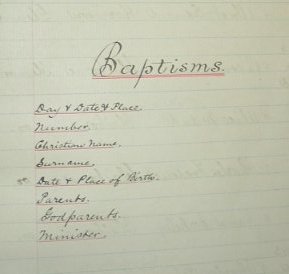 Baptisms.
Day & Date & Place.
Number.
Christian Name.
Surname.
Date & Place of Birth.
Parents.
Godparents.
Minister.